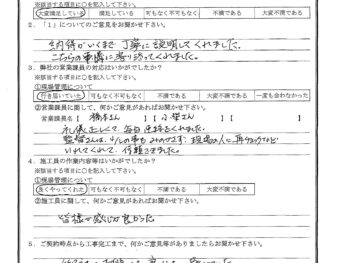 ※該当する項目に○を記入して下さい。
大変満足している 満足している 可もなく不可もなく 不満である 大変不満である
2.「1」についてのご意見をお聞かせ下さい。
納得がいくまで丁寧に説明してくれました。
こちらの事情に寄りそってくれました。
3. 弊社の営業課員の対応はいかがでしたか?
※該当する項目に○を記入して下さい。
①現場管理について
行き届いていた 可もなく不可もなく 不満である 大変不満である 一度も会わなかった
②営業課員に関して、何かご意見があればお聞かせ下さい。
営業課員名【 橋本さん 】【 小柴さん 】
礼儀正しくて、毎日
くれました。
監督さんは
現場の人に
いれてくれて、信頼できました。
4. 施工員の作業内容等はいかがでしたか?
※該当する項目に○を記入して下さい。
①現場管理について
良くやってくれた 可もなく不可もなく 不満である 大変不満である
②施工員に関して、何かご意見があればお聞かせ下さい。
皆様感じが良かった
5. ご契約時点から工事完工まで、何かご意見等がありましたらお聞かせ下さい。